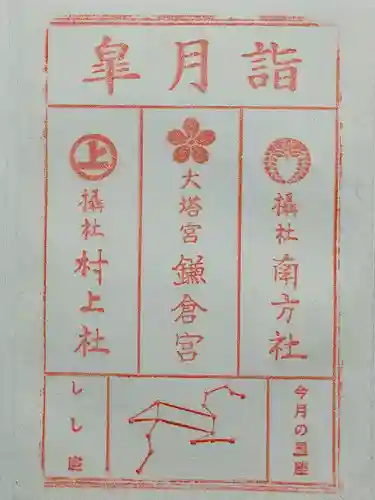 皐月詣
攝社 南方社
大塔宮 鎌倉宮
上
攝社 村上社
今月の星座
しし座